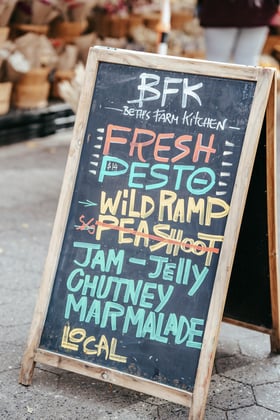 BFK
BETH'S FARM KITCHEN
FRESH
$14 PESTO
WILD RAMP
PEASHOOT
JAM-JELLY
CHUTNEY
MARMALADE
LOCAL